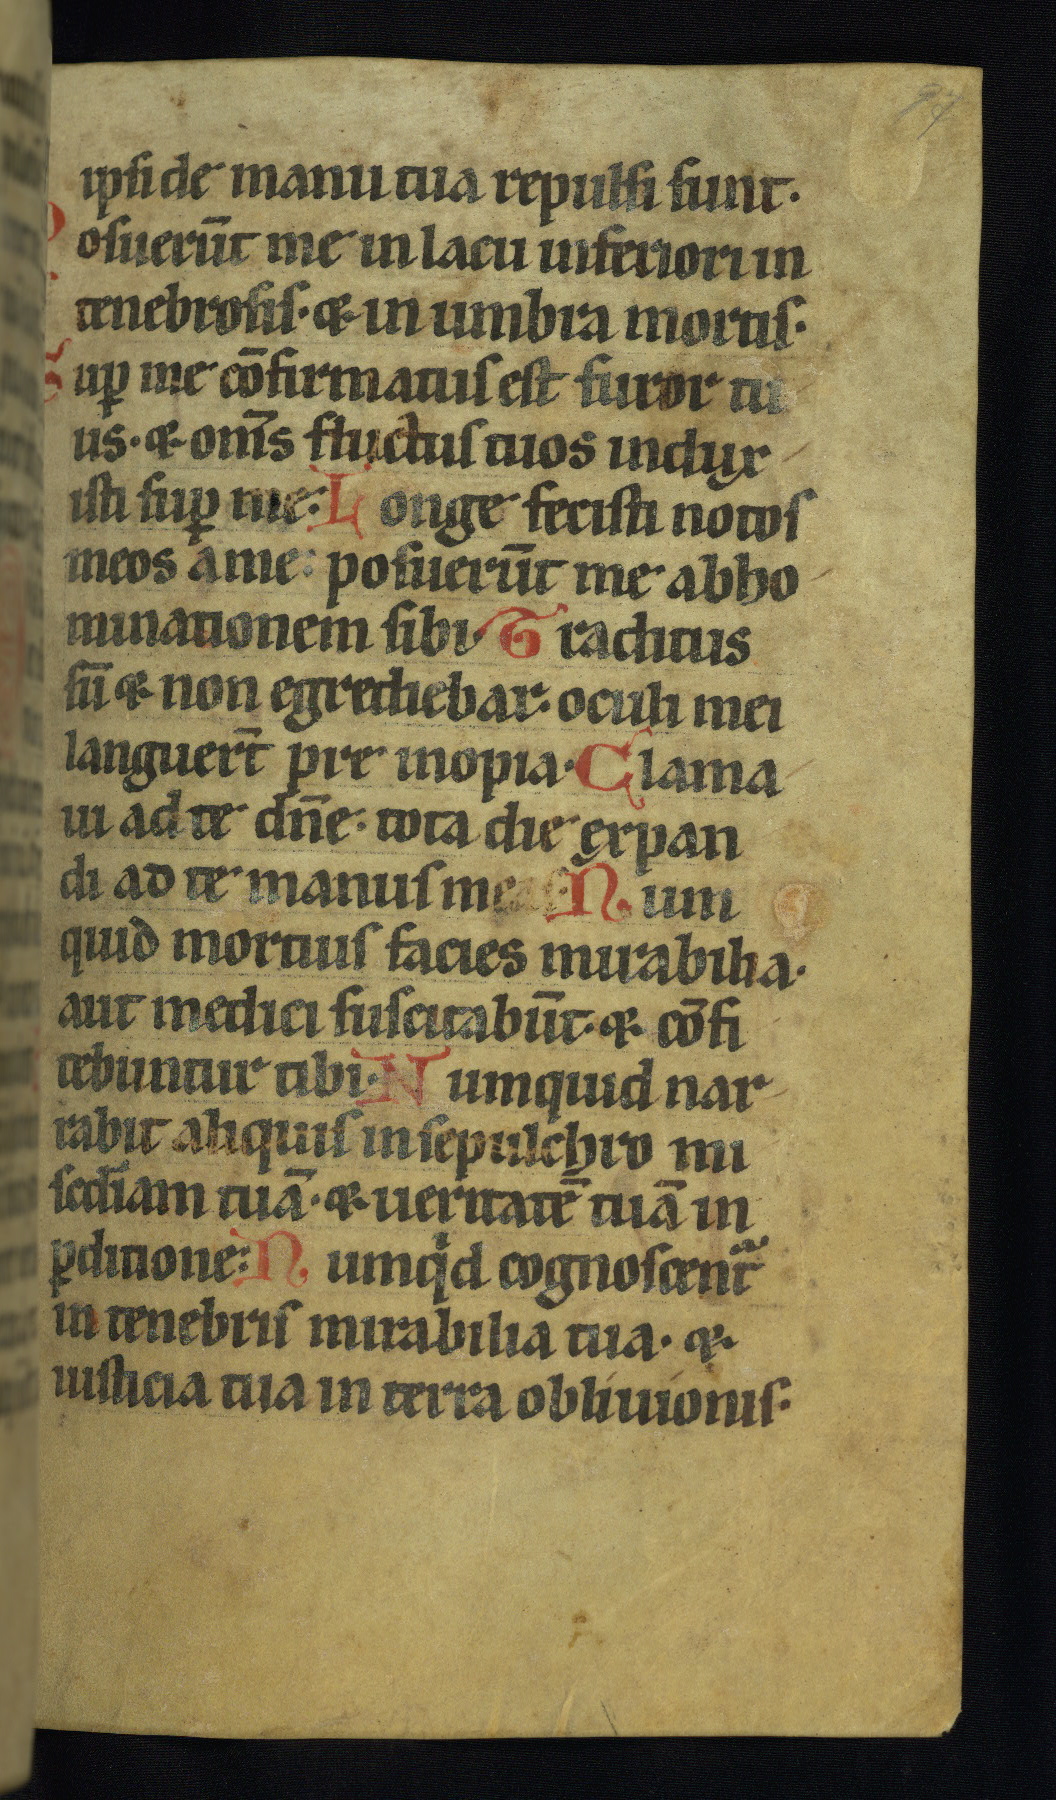 ipsi de manu tua repulsi sunt.
Posuer̄t me in lacu inferiori in
tenebrosis. & in umbra mortis.
Sup̱ me cōfirmatus est furor tu
us. & om̄s fluctus tuos indux
isti sup̱ me: Longe fecisti notos
meos a me: posuerūt me abho
minationem sibi. Traditus
sū & non egrediebar. oculi mei
languer̄t pre inopia. Clama
ui ad te dn̄e. tota die expan
di ad te manus meas. Num
quid mortuis facies mirabilia.
aut medici suscitabūt. & cōfi
tebuntur tibi. Numquid nar
rabit aliquis in sepulchro mi
sc̄diam tuā. & ueritatē tuā in
p̱ditione: Numqͥd cognoscent᷑
in tenebris mirabilia tua. &
iusticia tua in terra obliuionis.